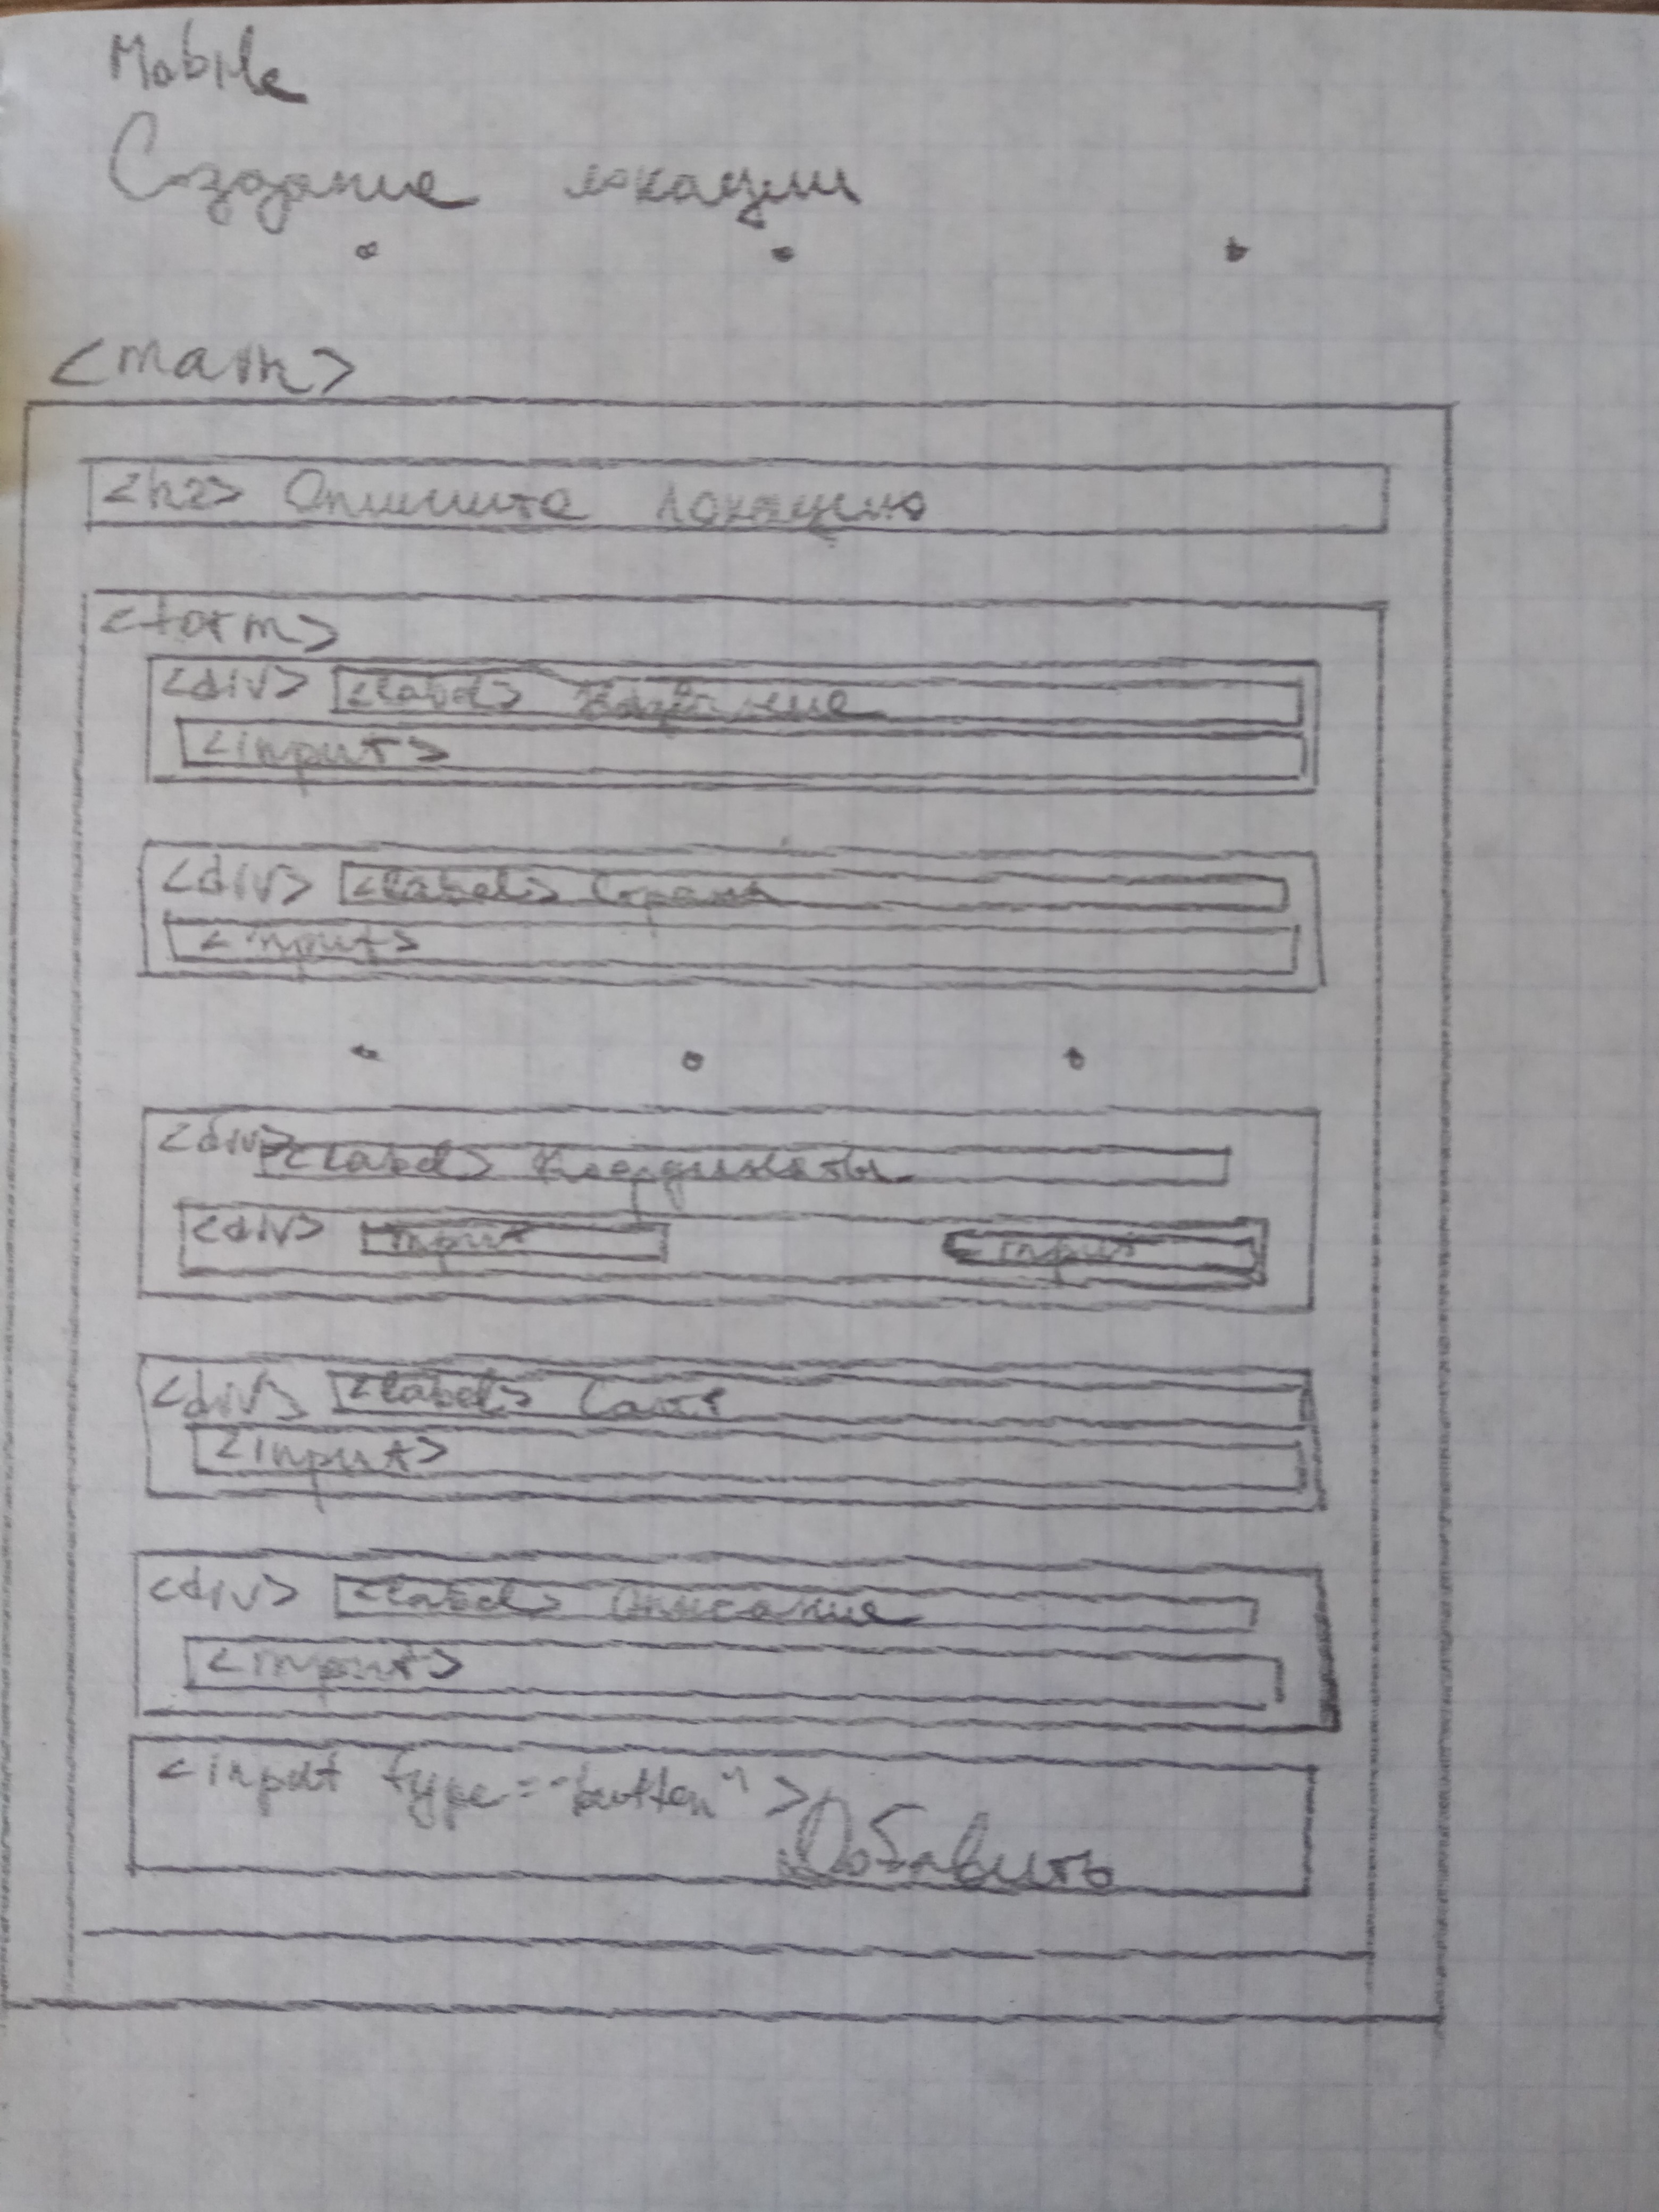 Mobile
Создание локации
<main>
<h2> Опишите локацию
<form>
<div> <label> Название
<input>
<div> <label> Страна
<input>
<div> <label> Координаты
<div> input input
<div> <label> Сайт
<input>
<div> <label> Описание
<input>
<input type="button"> Добавить